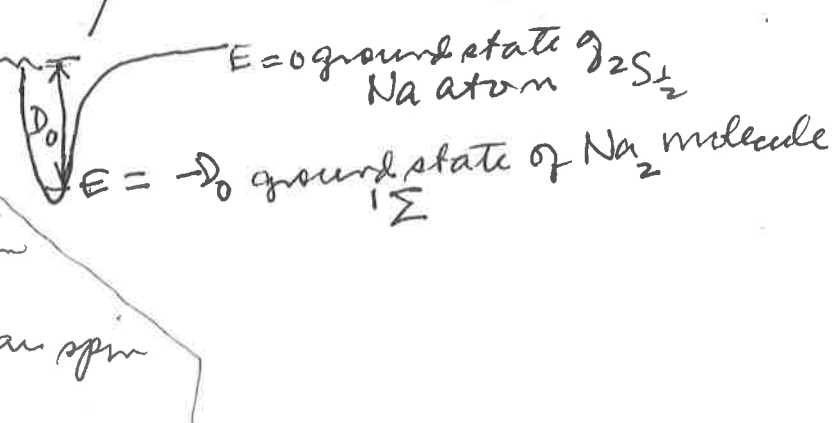 E = 0 ground state of ²S½
Na atom
D₀
E = -D₀ ground state of Na₂ molecule
¹Σ
an spin